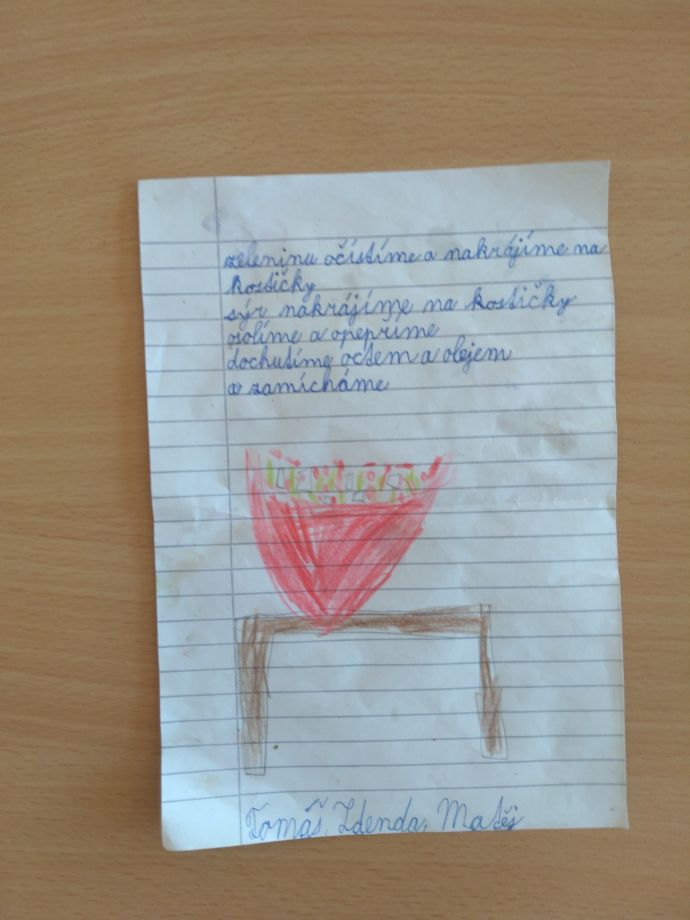 zeleninu očístíme a nakrájíme na
kostičky
sýr nakrájíme na kostičky
osolíme a opepříme
dochutíme octem a olejem
a zamícháme
Tomáš, Zdenda, Matěj